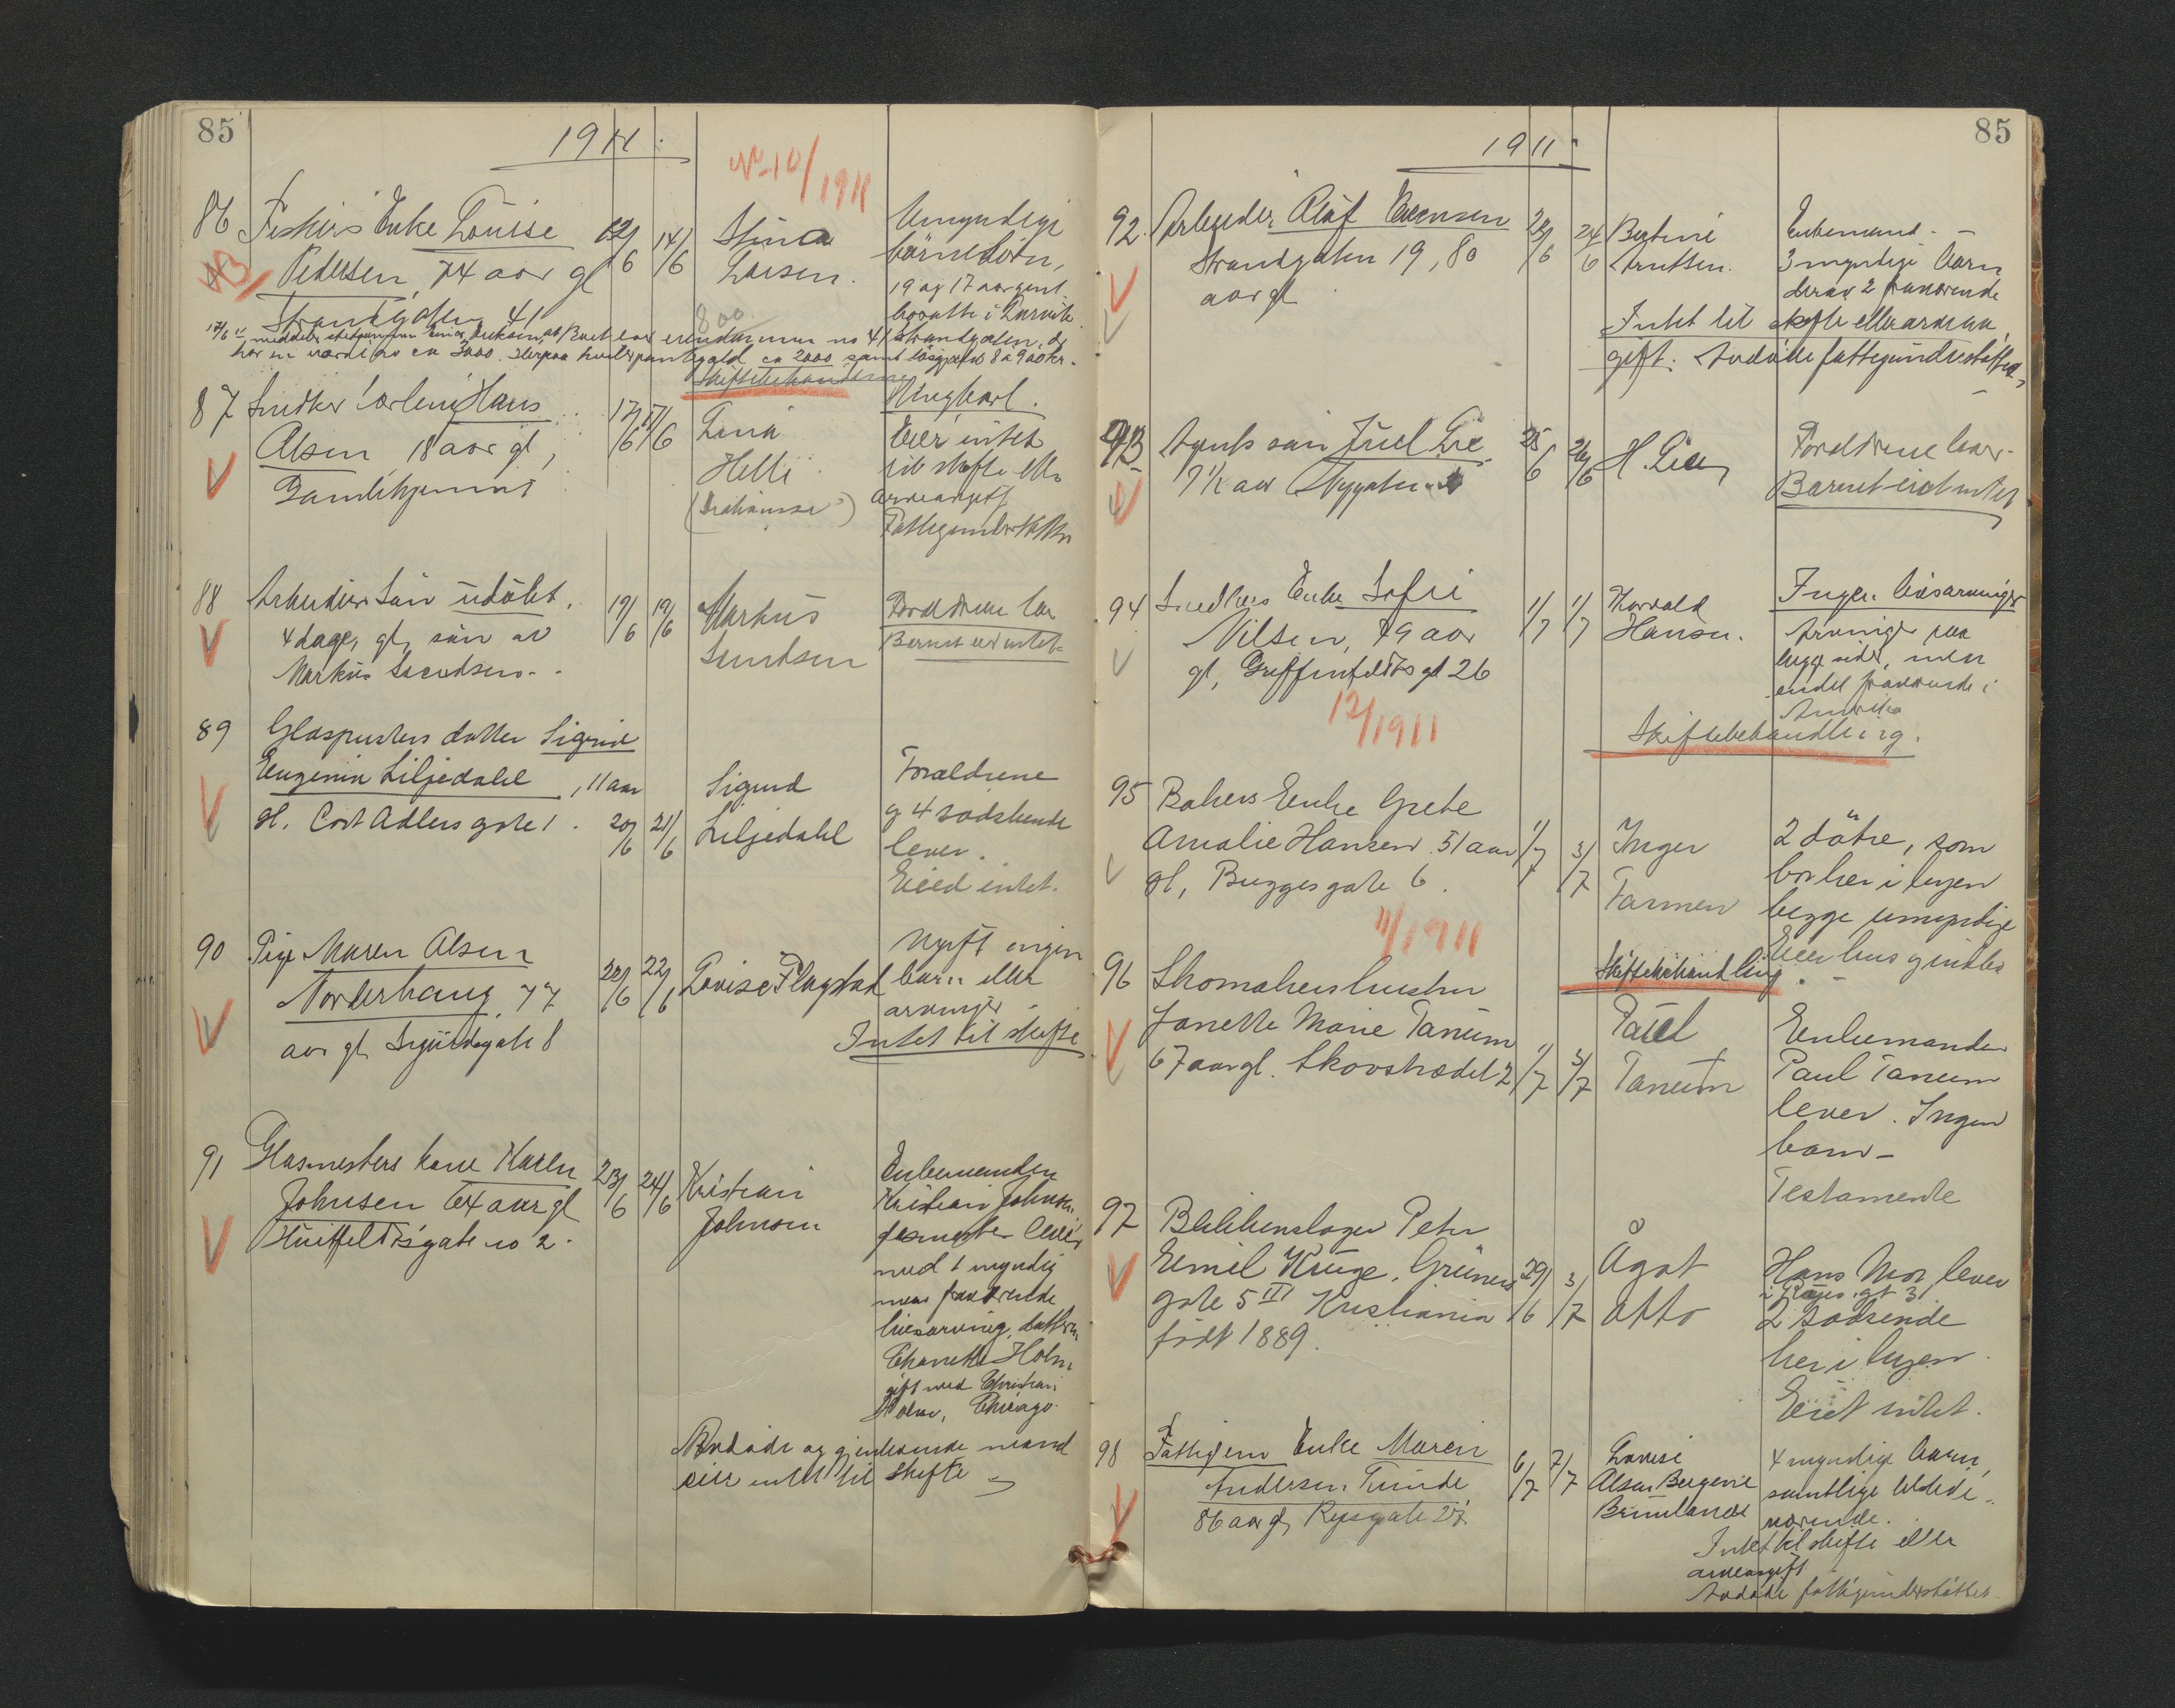 85
1911
No 10/1911
86 Fiskers Enke Louise 12/6 14/6 Stina Umyndige
Pedersen, 74 aar gl Larsen. börnebörn,
Strandgaten 41 19 og 17 aar gml
bosatte i Larvik
800
har en værdi av ca 3000. Herpaa hviler pantegjæld ca 2000 samt lösøre
Skiftebehandling
87 Snedker Hans 17/6 17/6 Lina Ungkarl.
Olsen, 18 aar gl, Helli Eier intet
til skifte eller
arveavgift
Fattigunderstøttet
88 Arbeiders sön udöbt. 19/6 19/6 Markus Forældrene lever
4 dage, gl, sön av Barnet eied intet
Markus Svendsen. Svendsen
89 Glaspusters datter Sigrid
Eugenia Liljedahl, 11 aar Sigurd Forældrene
gl. Cort Adlers gate 1. 20/6 21/6 Liljedahl og 4 sødskende
lever.
Eied intet.
90 Pige Maren Olsen 22/6 22/6 Lovise Flagstad Ugift ingen
Norderhaug, 77 barn eller
aar gl Sigurdsgate 8 arvinger
Intet til skifte
91 Glasmesters kone Karen 23/6 24/6 Kristian Enkemanden
Johnsen 64 aar gl Johnsen Kristian Johnsen,
Huitfeldtsgate no 2. glasmester lever
med 1 myndig
men fraværende
livsarving, datteren
Holm
gift med Christian
Holm, Chicago.
Avdöde og gjenlevende mand
eier intet til skifte
85
1911
92. Arbeider Olaf Evensen 23/6 24/6 Bertine Enkemand.
Strandgaten 19, 80 Knutsen. 3 myndige barn
aar gl derav 2 fraværende
Intet til skifte eller arveav
gift. Avdöde fattigunderstøttet
93 Agents sön Juel Lie 25/6 26/6 H. Lie Forældrene lever.
7 1/2 aar Barnet eied intet
94 Snedkers Enke Sofie 1/7 1/7 Thorvald Ingen livsarvinger
Nilsen, 79 aar Hansen. Arvinger paa
gl, Griffenfeldts gt 26 begge sider, men
endel fraværende i
Amerika
12/1911
Skiftebehandling.
95 Bakers Enke Grete
Amalie Hansen 51 aar 1/7 3/7 Inger 2 døtre, som
gl, Bugges gate 6. Farmen bor her i byen
begge umyndige
11/1911
Eier hus og indbo
Skiftebehandling.
96 Skomakers hustru
Janette Marie Tanum Paul Enkemanden
67 aar gl. Skovstrædet 2 1/7 3/7 Tanum Paul Tanum
lever. Ingen
barn
Testamente
97 Blikkenslager Peter
Emil Kruge, Grüners 29/6 3/7 Ågot Hans Mor lever
gate 5 III Kristiania Otto 2 sødskende
født 1889. her i byen.
Eiet intet.
98 Fattiglem Enke Maren 6/7 7/7 Lovise 4 myndige barn,
Andersen Trinde Olsen Bergene samtlige tilstede
86 aar gl, Reysgate 27. værende.
Intet til skifte eller
arveavgift
Avdöde fattigunderstøttet